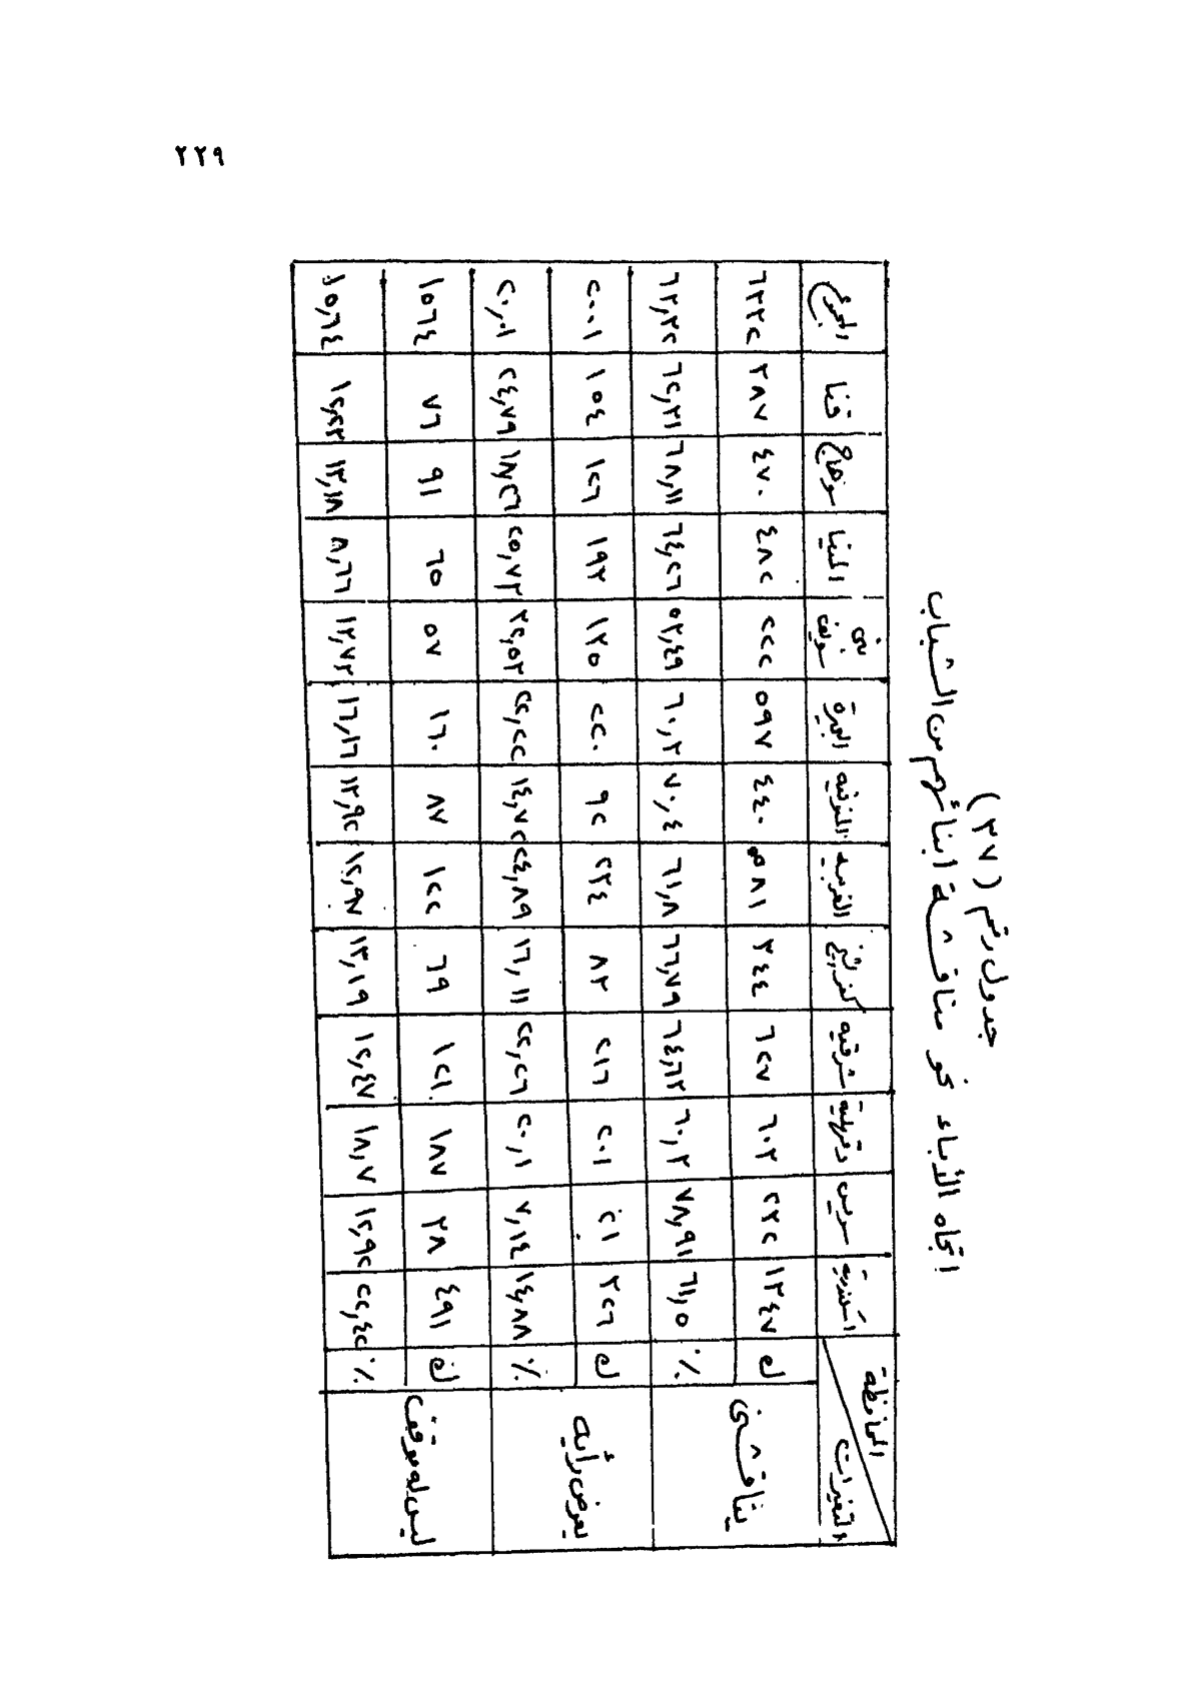 ٢٢٩
جدول رقم (٣٧)
اتجاه الأباء نحو مناقشة ابنائهم من الشباب
المحافظة المتغيرات اسكندرية سويس دقهلية شرقيه كفر الشيخ الغربيه المنوفيه الجيزة بنى سويف المنيا سوهاج قنا المجموع
يناقشنى ك ١٣٤٧ ٢٣٢ ٦٠٣ ٦٢٧ ٣٤٤ ٥٨١ ٤٤٠ ٥٩٧ ٢٢٢ ٤٨٢ ٤٧٠ ٣٨٧ ٦٣٣٢
٪ ٦١,٥ ٧٨,٩١ ٦٠,٣ ٦٤,٦٣ ٦٦,٧٩ ٦١,٨ ٧٠,٤ ٦٠,٣ ٥٣,٤٩ ٦٤,٢٦ ٦٨,١١ ٦٢,٣١ ٦٣,٣٢
يعرض رأيه ك ٣٢٦ ٢١ ٢٠١ ٢١٦ ٨٣ ٢٣٤ ٩٢ ٢٢٠ ١٣٥ ١٩٣ ١٢٦ ١٥٤ ٢٠٠١
٪ ١٤,٨٨ ٧,١٤ ٢٠,١ ٢٢,٢٦ ١٦,١١ ٢٤,٨٩ ١٤,٧٢ ٢٢,٢٢ ٣٢,٥٣ ٢٥,٧٣ ١٨,٢٦ ٢٤,٧٩ ٢٠,٠١
ليس له موقف ك ٤٩١ ٣٨ ١٨٧ ١٢١ ٦٩ ١٢٢ ٨٧ ١٦٠ ٥٧ ٦٥ ٩١ ٧٦ ١٥٦٤
٪ ٢٢,٤٢ ١٢,٩٢ ١٨,٧ ١٢,٤٧ ١٣,١٩ ١٢,٩٧ ١٣,٩٢ ١٦,١٦ ١٣,٧٣ ٨,٦٦ ١٣,١٨ ١٢,٢٣ ١٥,٦٤